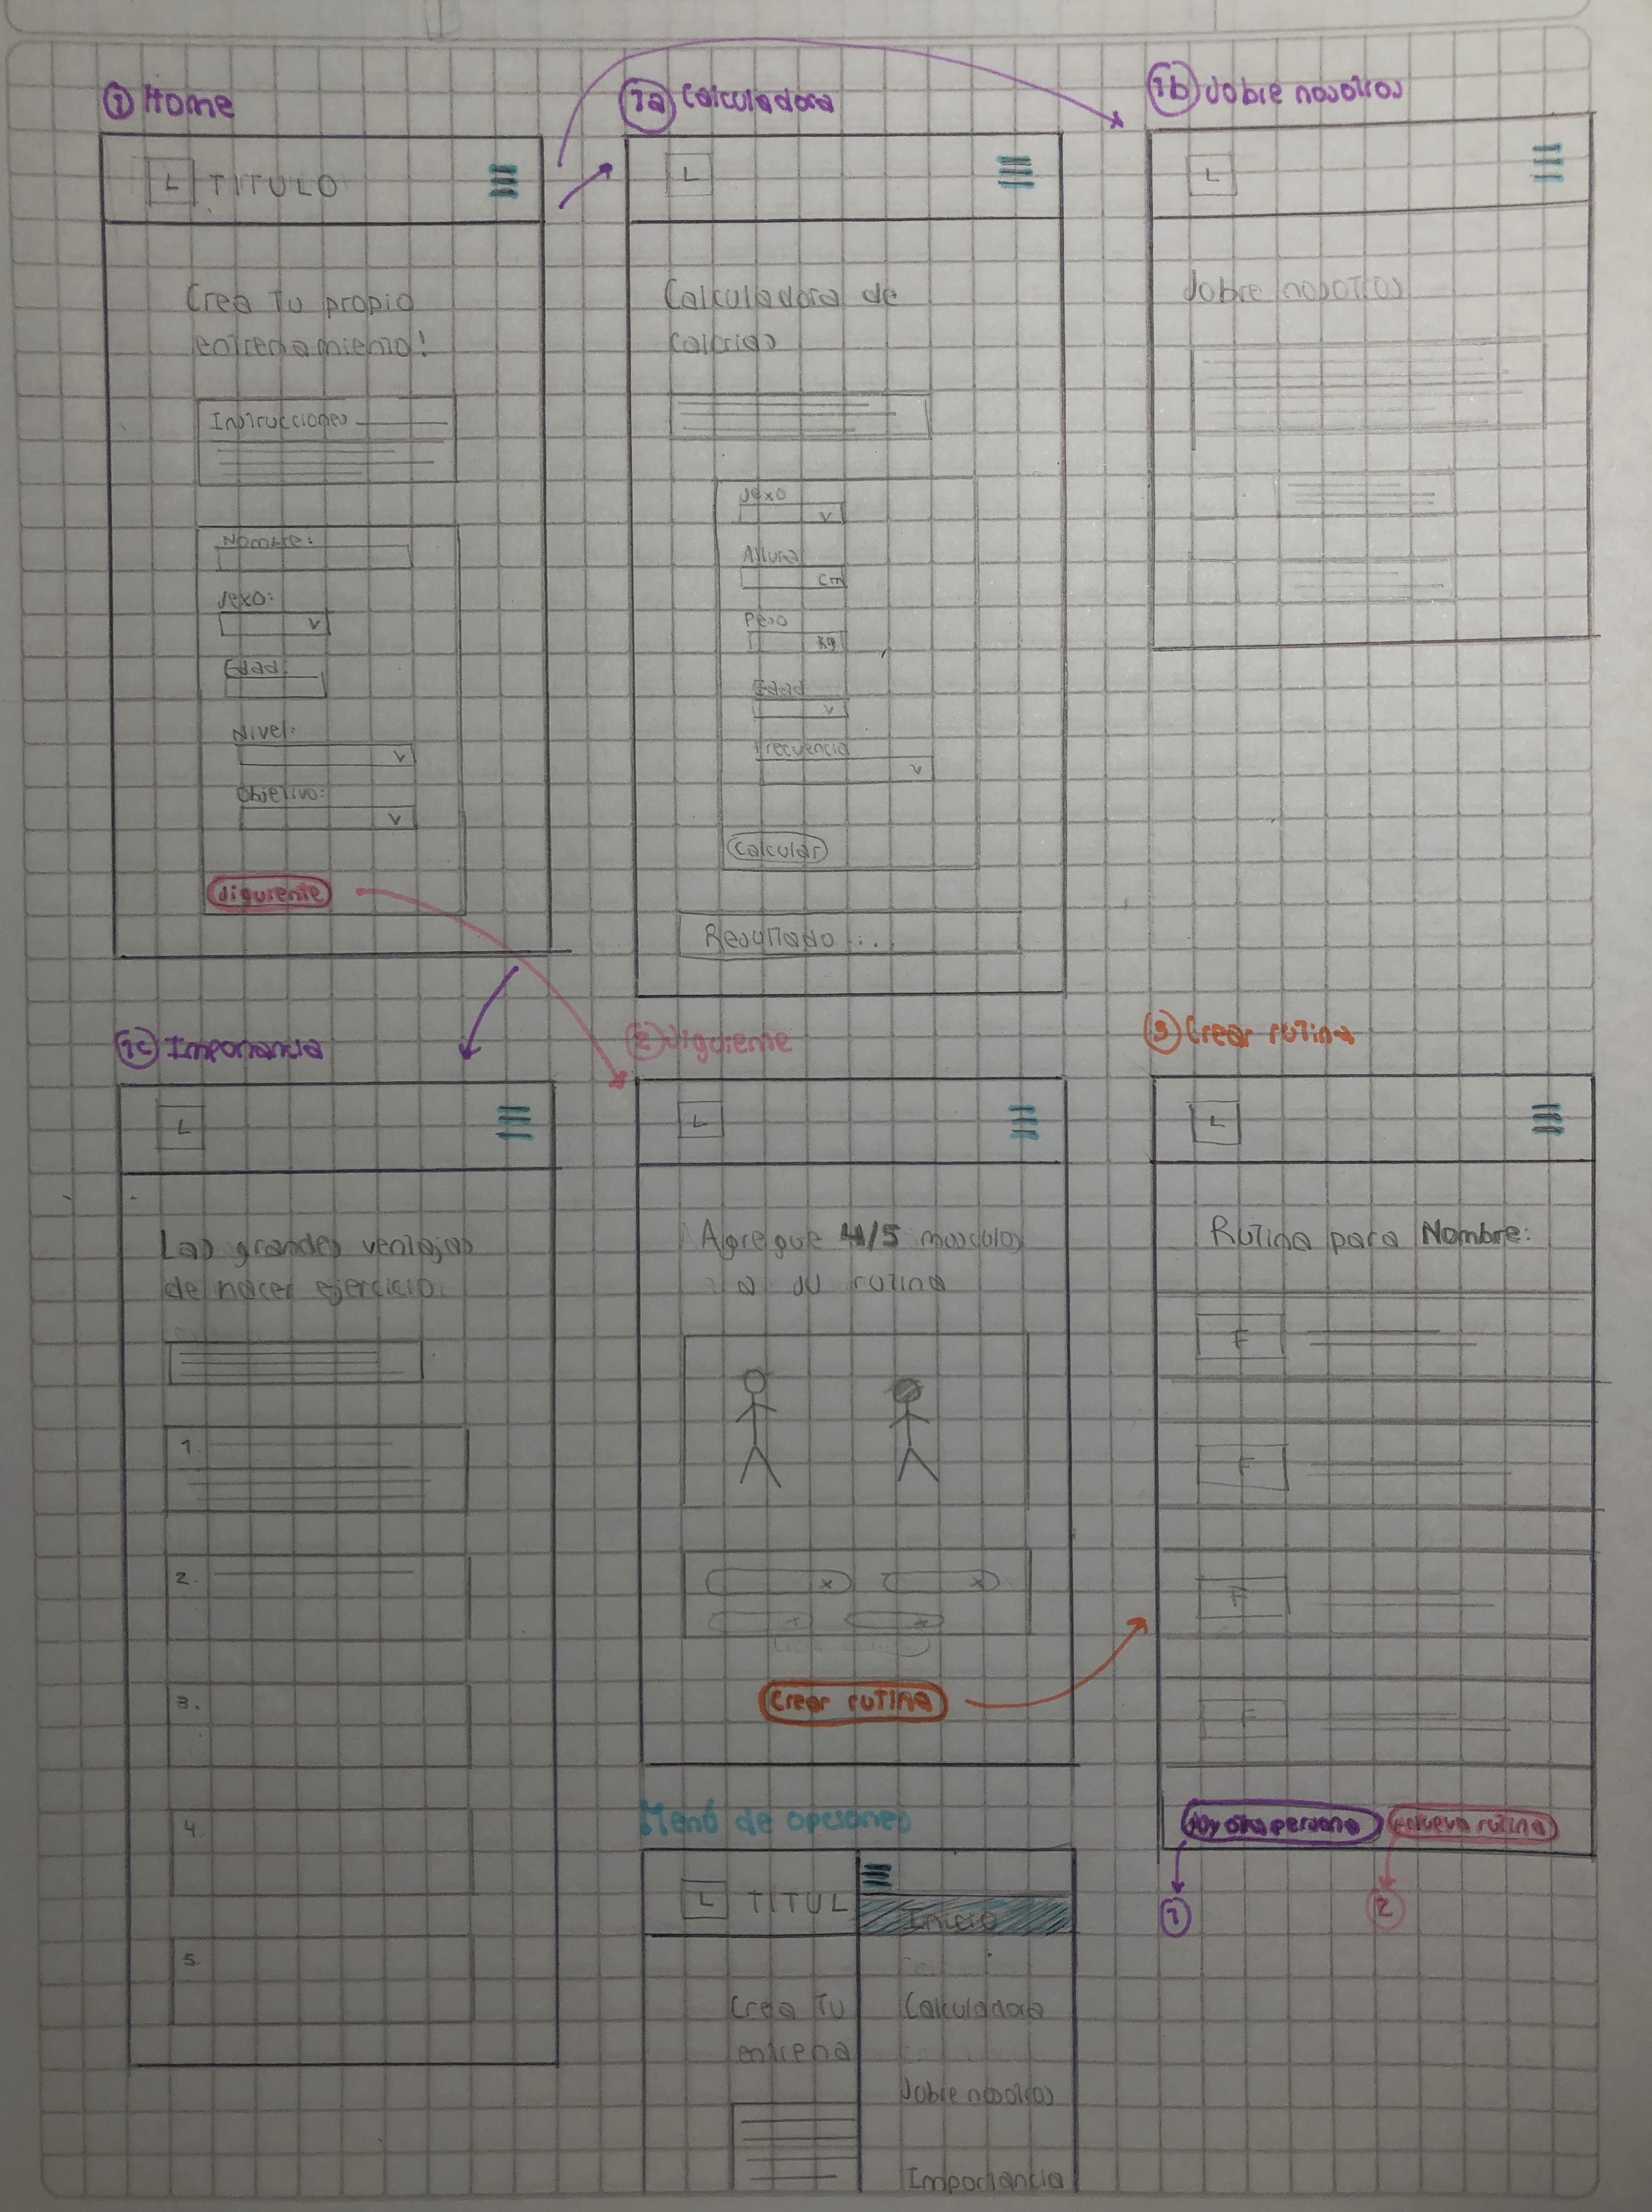 1 Home
L TITULO
Crea Tu propio
entrenamiento!
Instrucciones
Nombre:
Sexo:
v
Edad:
Nivel:
v
Objetivo:
v
Siguiente
1a Calculadora
L
Calculadora de
calorias
Sexo
v
Altura
Cm
Peso
Kg
Edad
v
Frecuencia
v
Calcular
Resultado ...
1b Sobre nosotros
L
Sobre nosotros
1c Importancia
L
Las grandes ventajas
de hacer ejercicio.
1.
2.
3.
4.
5.
2 Siguiente
L
Agregue 4/5 musculos
a su rutina
x x
x x
Crear rutina
3 Crear rutina
L
Rutina para Nombre:
F
F
F
F
Soy otra persona
nueva rutina
1 2
Menú de opciones
L TITUL
Inicio
Crea Tu
entrena
Calculadora
Sobre nosotros
Importancia